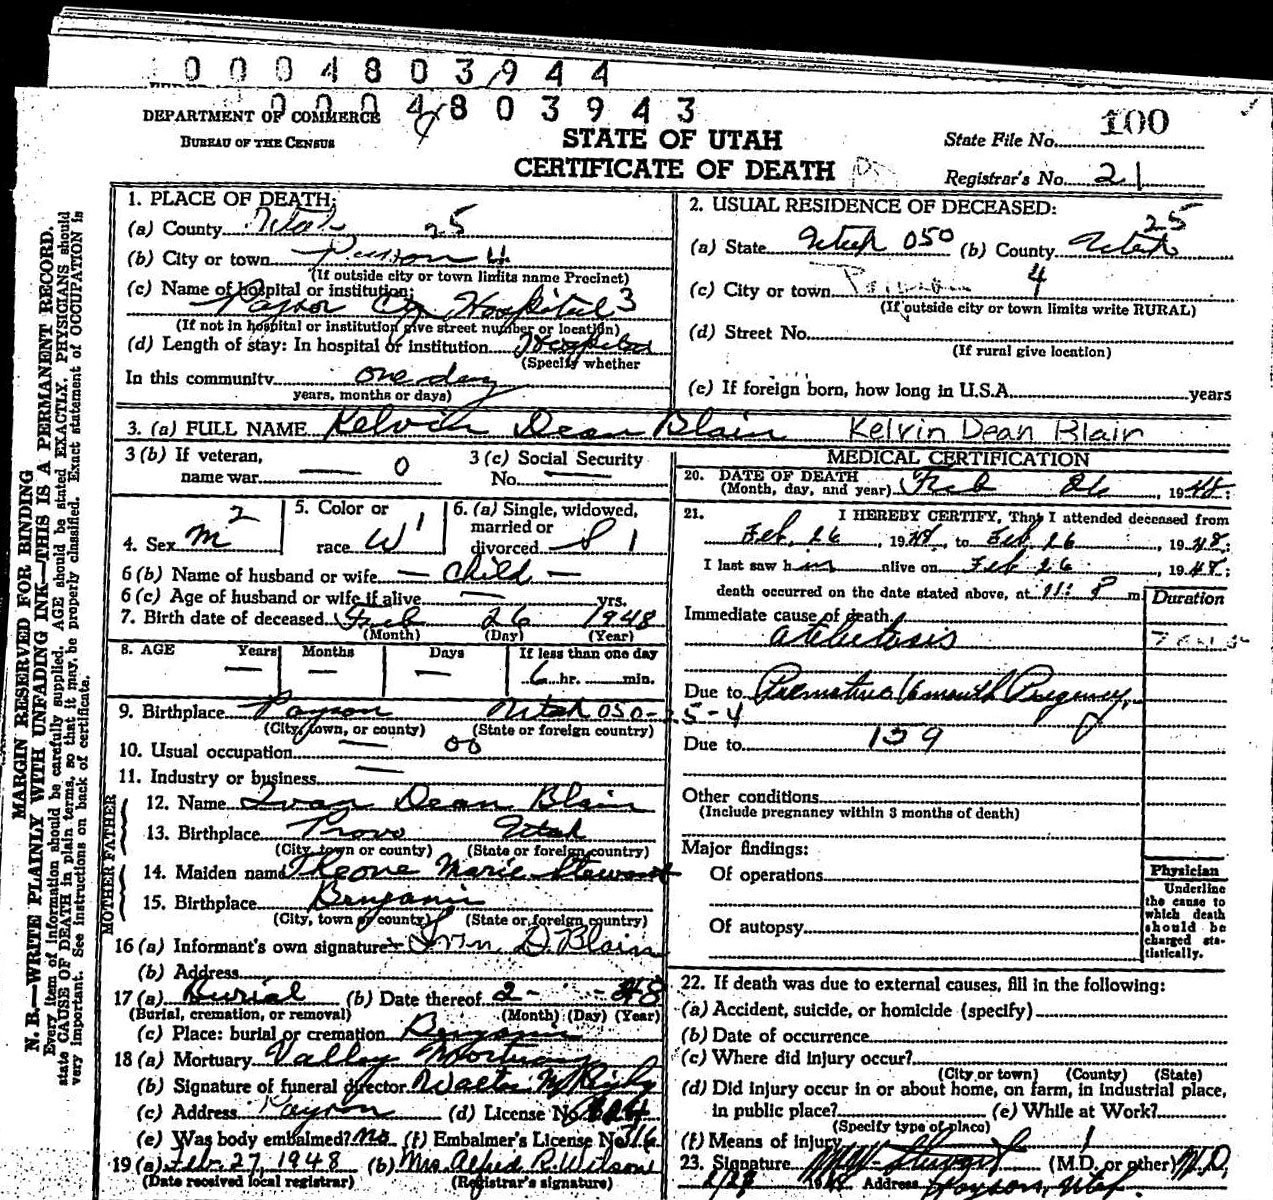 0004803944
0004803943
DEPARTMENT OF COMMERCE
BUREAU OF THE CENSUS
STATE OF UTAH
CERTIFICATE OF DEATH
State File No. 100
Registrar's No. 21
MARGIN RESERVED FOR BINDING
N. B.—WRITE PLAINLY WITH UNFADING INK—THIS IS A PERMANENT RECORD.
Every item of information should be carefully supplied. AGE should be stated EXACTLY. PHYSICIANS should
state CAUSE OF DEATH in plain terms, so that it may be properly classified. Exact statement of OCCUPATION is
very important. See instructions on back of certificate.
1. PLACE OF DEATH:
(a) County Utah 25
(b) City or town Payson 4
(If outside city or town limits name Precinct)
(c) Name of hospital or institution:
Payson City Hospital 3
(If not in hospital or institution give street number or location)
(d) Length of stay: In hospital or institution Hospital
(Specify whether
In this community one day
years, months or days)
2. USUAL RESIDENCE OF DECEASED:
(a) State Utah 050 (b) County Utah 25
(c) City or town Payson 4
(If outside city or town limits write RURAL)
(d) Street No.
(If rural give location)
(e) If foreign born, how long in U.S.A. years
3. (a) FULL NAME Kelvin Dean Blain Kelvin Dean Blair
3 (b) If veteran, name war — 0
3 (c) Social Security No. —
4. Sex M 2
5. Color or race W 1
6. (a) Single, widowed, married or divorced S 1
6 (b) Name of husband or wife — Child —
6 (c) Age of husband or wife if alive — yrs.
7. Birth date of deceased Feb 26 1948
(Month) (Day) (Year)
8. AGE Years Months Days If less than one day
— — — 6 hr. min.
9. Birthplace Payson Utah 050-25-4
(City, town, or county) (State or foreign country)
10. Usual occupation — 00
11. Industry or business —
FATHER
12. Name Ivan Dean Blain
13. Birthplace Provo Utah
(City, town or county) (State or foreign country)
MOTHER
14. Maiden name Theone Marie Stewart
15. Birthplace Benjamin
(City, town or county) (State or foreign country)
16 (a) Informant's own signature Ivan D. Blain
(b) Address
17 (a) Burial (b) Date thereof 2- -48
(Burial, cremation, or removal) (Month) (Day) (Year)
(c) Place: burial or cremation Benjamin
18 (a) Mortuary Valley Mortuary
(b) Signature of funeral director Walter
(c) Address Payson (d) License No.
(e) Was body embalmed? no (f) Embalmer's License No. 316
19 (a) Feb. 27, 1948 (b) Mrs. Alfred R. Wilson
(Date received local registrar) (Registrar's signature)
MEDICAL CERTIFICATION
20. DATE OF DEATH
(Month, day, and year) Feb 26, 1948;
21. I HEREBY CERTIFY, That I attended deceased from
Feb. 26, 1948, to Feb. 26, 1948;
I last saw him alive on Feb 26, 1948;
death occurred on the date stated above, at 11: P m
Duration
Immediate cause of death
atelectosis
Due to Premature 6 month Pregnancy
Due to 159
Other conditions
(Include pregnancy within 3 months of death)
Major findings:
Of operations
Of autopsy
Physician
Underline
the cause to
which death
should be
charged sta-
tistically.
22. If death was due to external causes, fill in the following:
(a) Accident, suicide, or homicide (specify)
(b) Date of occurrence
(c) Where did injury occur?
(City or town) (County) (State)
(d) Did injury occur in or about home, on farm, in industrial place,
in public place? (e) While at Work?
(Specify type of place)
(f) Means of injury
23. Signature Stewart (M.D. or other) M.D.
Address Payson, Utah.